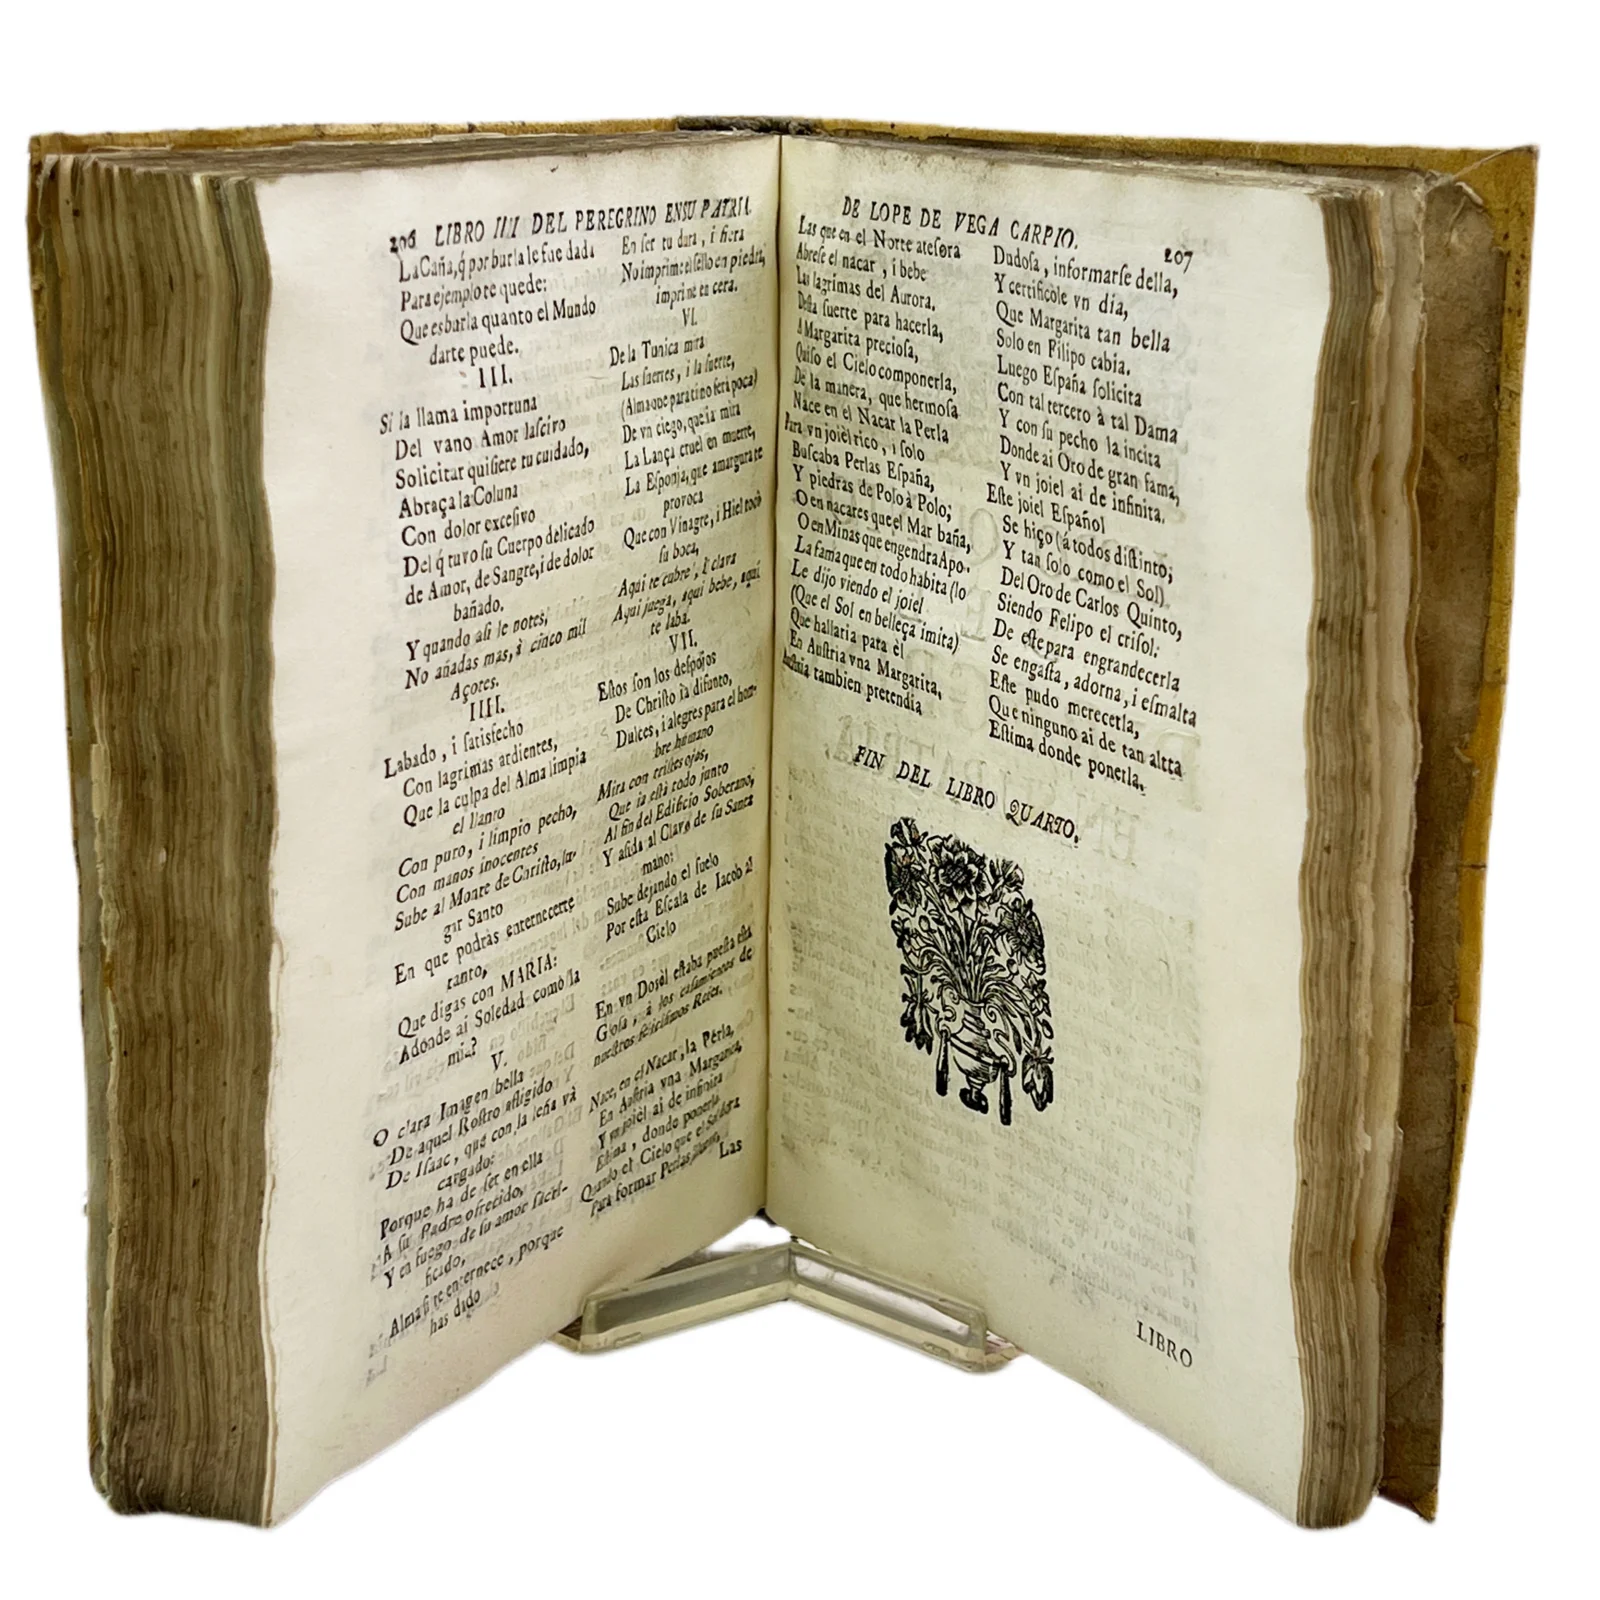 206 LIBRO IIII DEL PEREGRINO EN SU PATRIA.
La Caña, q̃ por burla le fue dada
Para ejemplo te quede:
Que es burla quanto el Mundo
darte puede.
III.
Si la llama importuna
Del vano Amor lascivo
Solicitar quisiere tu cuidado,
Abraça la Coluna
Con dolor excesivo
Del q̃ tuvo su Cuerpo delicado
de Amor, de Sangre, i de dolor
bañado.
Y quando asi le notes,
No añadas mas, à cinco mil
Açotes.
IIII.
Labado, i satisfecho
Con lagrimas ardientes,
Que la culpa del Alma limpia
el llanto
Con puro, i limpio pecho,
Con manos inocentes
Sube al Monte de Christo, lu-
gar Santo
En que podràs enternecerte
tanto,
Que digas con MARIA:
Adonde ai Soledad como la
mia?
V.
O clara Imagen bella
De aquel Rostro afligido
De Isaac, que con la leña và
cargado:
Porque ha de ser en ella
A su Padre ofrecido,
Y en fuego de su amor sacri-
ficado,
Alma si te enternece, porque
has dido
En ser tu dura, i fiera
No imprime el sello en piedra,
imprime en cera.
VI.
De la Tunica mira
Las suertes, i la suerte,
(Alma que para ti no serà poca)
De vn ciego, que ia mira
La Lança cruel en muerte,
La Esponja, que amargura te
provoca
Que con Vinagre, i Hiel tocò
su boca,
Aqui te cubre, i clava
Aqui juega, aqui bebe, aqui
te laba.
VII.
Estos son los despojos
De Christo ia difunto,
Dulces, i alegres para el hom-
bre humano
Mira con tristes ojos,
Que ia està todo junto
Al fin del Edificio Soberano,
Y asida al Clavo de su Santa
mano:
Sube dejando el suelo
Por esta Escala de Iacob al
Cielo
En vn Dosèl estaba puesta esta
Glosa, à los casamientos de
nuestros felicisimos Reies.
Nace, en el Nacar, la Perla,
En Austria vna Margarita,
Y vn joièl ai de infinita
Estima, donde ponerla
Quando el Cielo que el Sol dora
Para formar Perlas
Las
DE LOPE DE VEGA CARPIO. 207
Las que en el Norte atesora
Abrese el nacar, i bebe
Las lagrimas del Aurora.
Desta suerte para hacerla,
A Margarita preciosa,
Quiso el Cielo componerla,
De la manera, que hermosa
Nace en el Nacar la Perla
Para vn joièl rico, i solo
Buscaba Perlas España,
Y piedras de Polo à Polo;
O en nacares que el Mar baña,
O en Minas que engendra Apo-
La fama que en todo habita (lo
Le dijo viendo el joiel
(Que el Sol en belleça imita)
Que hallaria para èl
En Austria vna Margarita,
Austria tambien pretendia
Dudosa, informarse della,
Y certificòle vn dia,
Que Margarita tan bella
Solo en Filipo cabia.
Luego España solicita
Con tal tercero à tal Dama
Y con su pecho la incita
Donde ai Oro de gran fama,
Y vn joiel ai de infinita.
Este joiel Español
Se hiço (á todos distinto;
Y tan solo como el Sol)
Del Oro de Carlos Quinto,
Siendo Felipo el crisol:
De este para engrandecerla
Se engasta, adorna, i esmalta
Este pudo merecerla,
Que ninguno ai de tan altta
Estima donde ponerla.
FIN DEL LIBRO QUARTO.
LIBRO